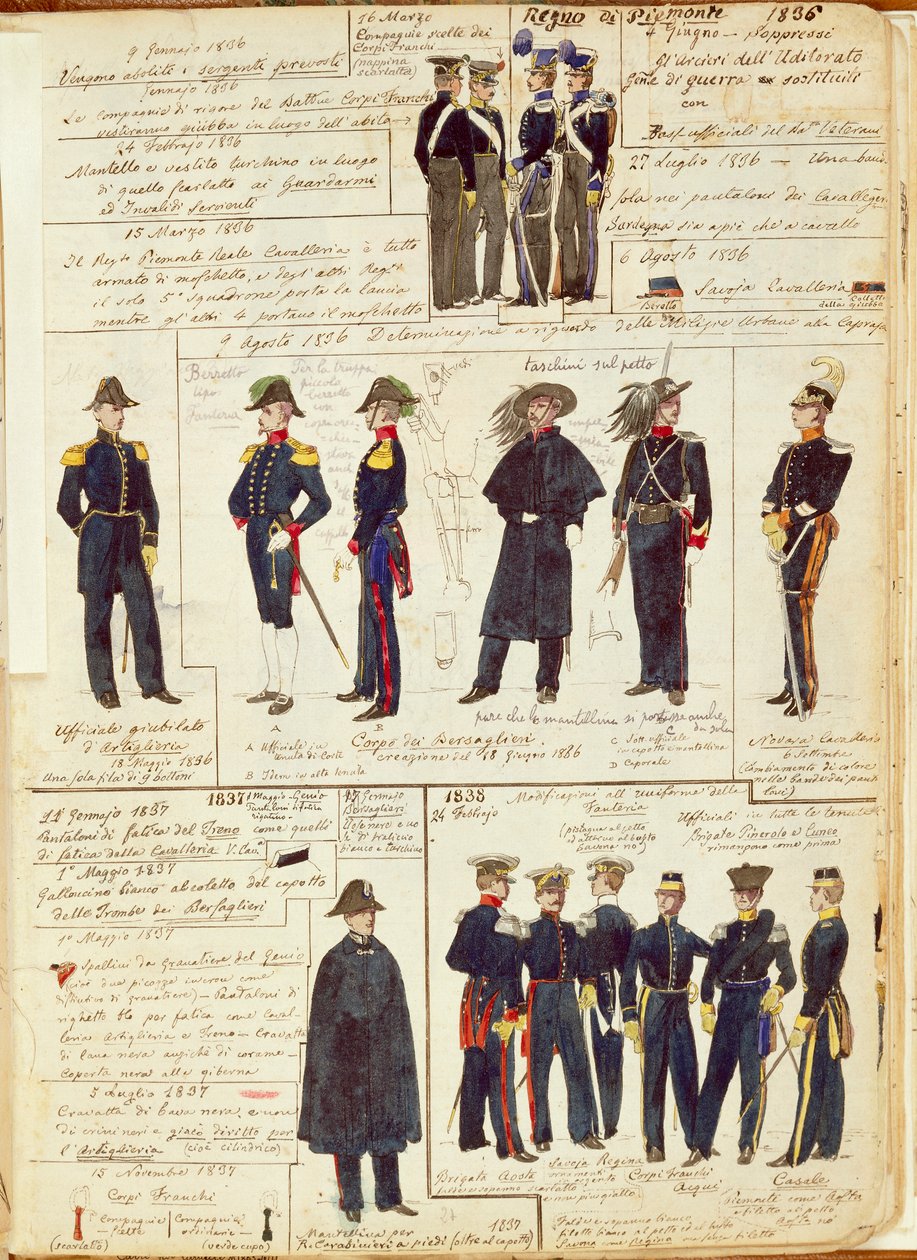 Regno di Piemonte 1836
9 Gennajo 1836
Vengono aboliti i sergenti prevosti
Gennajo 1836
Le compagnie di rigore del Battne Corpi Franchi
vestiranno giubba in luogo dell'abito
24 Febbrajo 1836
Mantello e vestito turchino in luogo
di quello scarlatto ai Guardarmi
ed Invalidi Serventi
15 Marzo 1836
Il Regto Piemonte Reale Cavalleria è tutto
armato di moschetto, e degl'altri Regti
il solo 5° squadrone porta la lancia
mentre gl'altri 4 portano il moschetto
16 Marzo
Compagnie scelte dei
Corpi Franchi
(nappina
scarlatta)
4 Giugno — Soppressi
gl'Arcieri dell'Uditorato
Gene di guerra sostituiti
con
Bass'ufficiali del Veterani
27 Luglio 1836 — Una banda
sola nei pantaloni dei Cavallegeri
Sardegna sia a piè che a cavallo
6 Agosto 1836
Savoja Cavalleria
Berretto
Colletto
della giubba
9 Agosto 1836 Determinazione a riguardo delle Milizie Urbane alla Capraja
Berretto
tipo
Fanteria
Per la truppa
piccolo
berretto
con
il
cappello
taschini sul petto
pare che la mantellina si portasse anche
da sola
Ufficiale giubilato
d'Artiglieria
18 Maggio 1836
Una sola fila di 9 bottoni
A
B
A Ufficiale in
tenuta di Corte
B Idem in alta tenuta
Corpo dei Bersaglieri
creazione del 18 Giugno 1836
C
C Sott.ufficiale
in capotto e mantellina
D Caporale
Novara Cavalleria
6 Settembre
(Cambiamento di colore
nelle bande dei panta
loni)
1837
11 Gennajo 1837
Pantaloni di fatica del Treno come quelli
di fatica della Cavalleria
1° Maggio Genio
Pantaloni di fatica
rigatino
17 Gennajo
Bersaglieri
Uose nere e no
di traliccio
bianco e turchino
1° Maggio 1837
Galloncino bianco al coletto del capotto
delle Trombe dei Bersaglieri
1° Maggio 1837
Spallini da Granatiere del Genio
(cioè due picozze in croce come
distintivo di granatiere) — Pantaloni di
righetto blo per fatica come Caval-
leria Artiglieria e Treno — Cravatta
di lana nera anziché di corame —
Coperta nera alla giberna
5 Luglio 1837
Cravatta di lana nera, e non
di crini neri e giacò diritto per
l'Artiglieria (cioè cilindrico)
15 Novembre 1837
Corpi Franchi
Compagnie
scelte
(scarlatto)
Compagnie
ordinarie
(verde cupo)
Mantellina per 1837
R. Carabinieri a piedi (oltre al capotto)
27
1838 Modificazioni all'uniforme della
Fanteria
24 Febbrajo
(pistagna al petto
ed attorno al busto
Savona no)
Ufficiali in tutte le tenute
Brigate Pinerolo e Cuneo
rimangono come prima
Brigata Aosta
falde e soppanno scarlatto
Savoja Regina
ornamenti
argento
e non più gialla
Corpi Franchi
Acqui
Casale
Piemonte come Aosta
filetto al petto
Aosta no
Falde e soppanno bianco
filetto bianco al petto ed al busto
Savona come Regina ma senza filetto